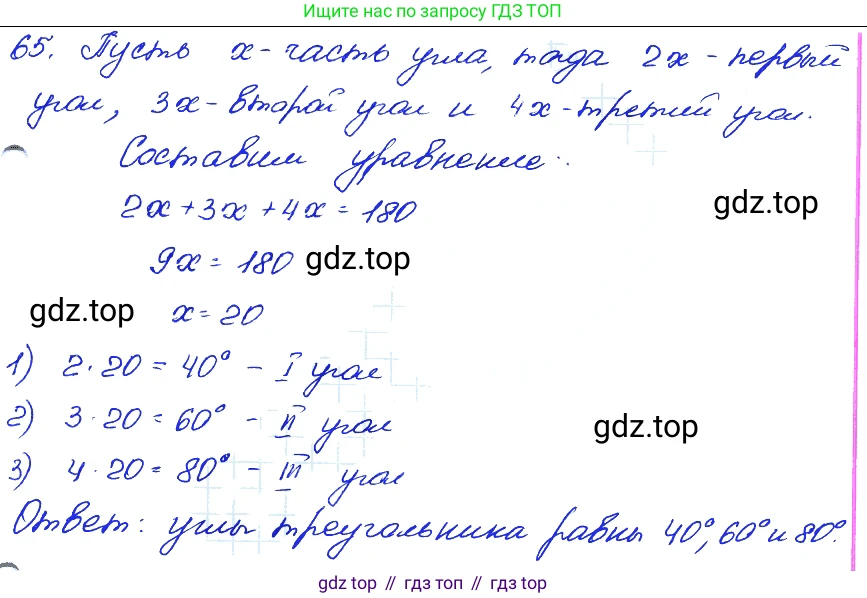 Ищите нас по запросу ГДЗ ТОП
65. Пусть x - часть угла, тогда 2x - первый
угол, 3x - второй угол и 4x - третий угол.
Составим уравнение:
2x + 3x + 4x = 180
gdz.top
9x = 180 gdz.top
gdz.top x = 20
1) 2 · 20 = 40° - I угол
2) 3 · 20 = 60° - II угол
gdz.top
3) 4 · 20 = 80° - III угол
Ответ: углы треугольника равны 40°, 60° и 80°.
gdz top // гдз топ // gdz top